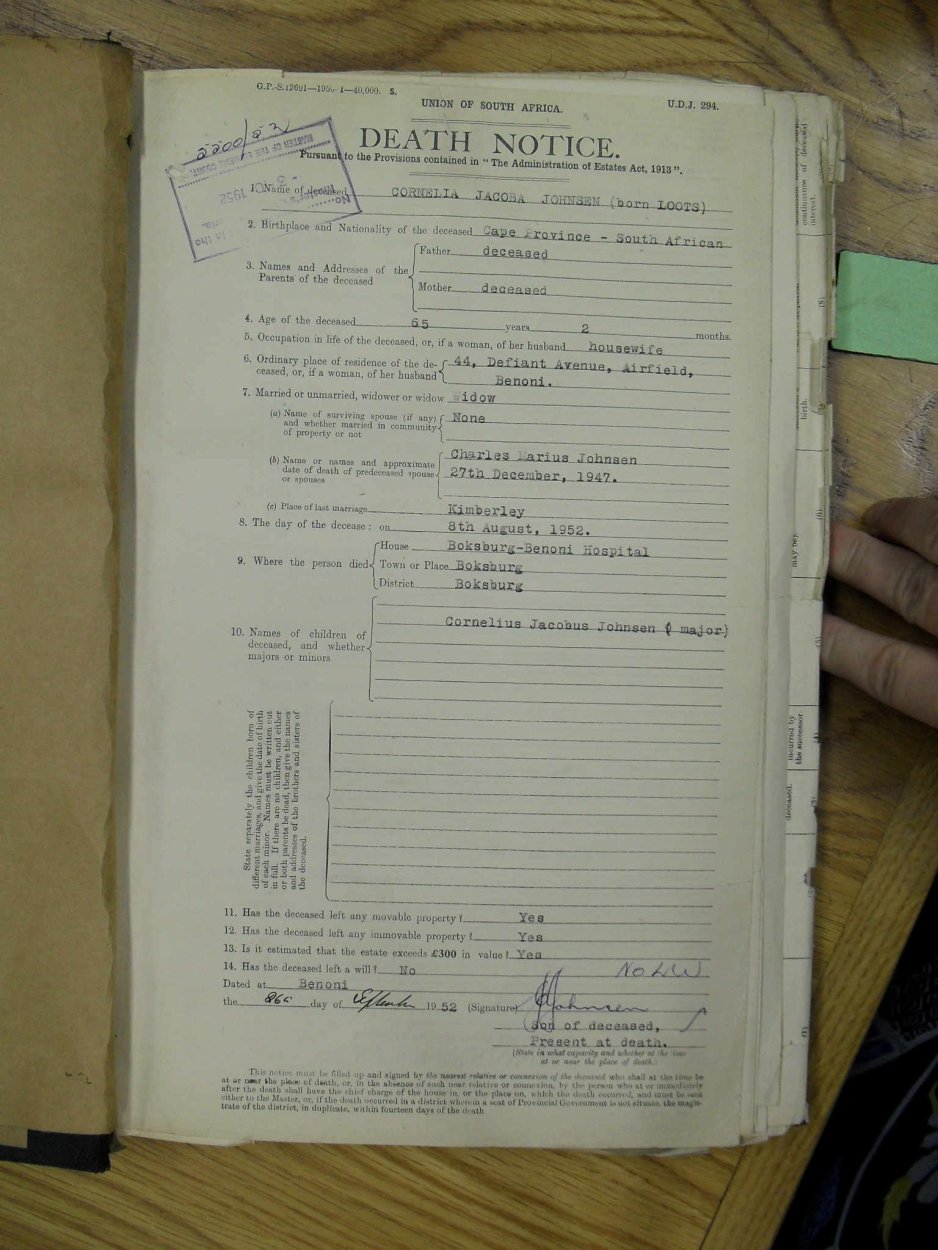 G.P.-S.12691—1950-1—40,000. S.
UNION OF SOUTH AFRICA.
U.D.J. 294.
2200/52
DEATH NOTICE.
Pursuant to the Provisions contained in "The Administration of Estates Act, 1913".
MASTER OF THE SUPREME COURT
1952
1. Name of deceased CORNELIA JACOBA JOHNSEN (born LOOTS)
2. Birthplace and Nationality of the deceased Cape Province - South African
3. Names and Addresses of the Parents of the deceased
Father deceased
Mother deceased
4. Age of the deceased 65 years 2 months.
5. Occupation in life of the deceased, or, if a woman, of her husband housewife
6. Ordinary place of residence of the de-
ceased, or, if a woman, of her husband
44, Defiant Avenue, Airfield,
Benoni.
7. Married or unmarried, widower or widow widow
(a) Name of surviving spouse (if any)
and whether married in community
of property or not
None
(b) Name or names and approximate
date of death of predeceased spouse
or spouses
Charles Marius Johnsen
27th December, 1947.
(c) Place of last marriage Kimberley
8. The day of the decease: on 8th August, 1952.
9. Where the person died
House Boksburg-Benoni Hospital
Town or Place Boksburg
District Boksburg
10. Names of children of
deceased, and whether
majors or minors
Cornelius Jacobus Johnsen ( major)
State separately the children born of
different marriages, and give the date of birth
of each minor. Names must be written out
in full. If there are no children, and either
or both parents be dead, then give the names
and addresses of the brothers and sisters of
the deceased.
11. Has the deceased left any movable property? Yes
12. Has the deceased left any immovable property? Yes
13. Is it estimated that the estate exceeds £300 in value? Yes
14. Has the deceased left a will? No
No LW
Dated at Benoni
the day of September 1952 (Signature) Johnsen
Son of deceased,
Present at death.
(State in what capacity and whether at the time
at or near the place of death.)
This notice must be filled up and signed by the nearest relative or connexion of the deceased who shall at the time be
at or near the place of death, or, in the absence of such near relative or connexion, by the person who at or immediately
after the death shall have the chief charge of the house in, or the place on, which the death occurred, and must be sent
either to the Master, or, if the death occurred in a district wherein a seat of Provincial Government is not situate, the magis-
trate of the district, in duplicate, within fourteen days of the death
continuance of deceased
interest.
(8)
birth.
(6)
may be).
(5)
incurred by
the successor
(4)
deceased.
(3)
(1)